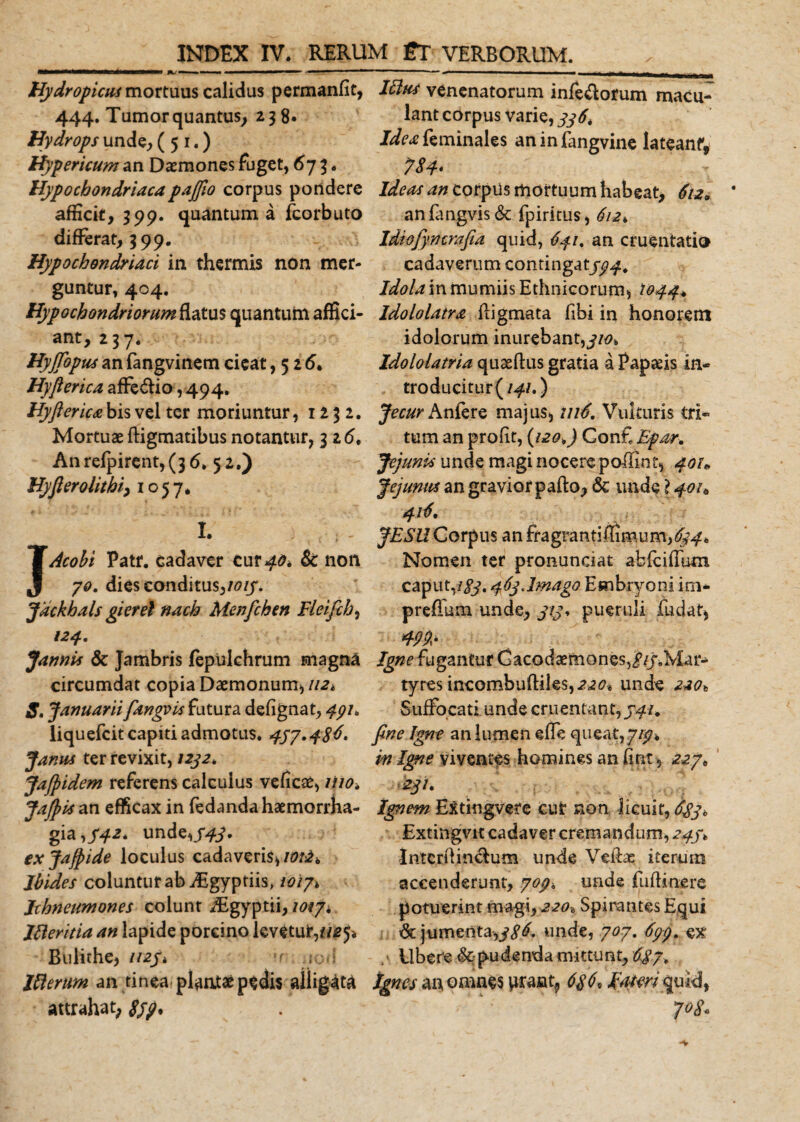 INDEX IV. RERUM ET VERBORUM.
Hydropicus mortuus calidus permansit,
444. Tumor quantus, 238.
Hydrops unde, (51.)
Hypericum an Dæmones fuget, 673.
Hypochondriaca passio corpus pondere
afficit, 399. quantum à scorbuto
differat, 399.
Hypochondriaci in thermis non mer-
guntur, 404.
Hypochondriorum flatus quantum affici-
ant, 237.
Hyssopus an sangvinem cieat, 526.
Hysterica affectio, 494.
Hystericæ bis vel ter moriuntur, 1232.
Mortuæ stigmatibus notantur, 326.
An respirent, (36. 52.)
Hysterolithi, 1057.
I.
JAcobi Patr. cadaver cur 40. & non
70. dies conditus, 1015.
Jäckhals gieret nach Menschen Fleisch,
124.
Jannis & Jambris sepulchrum magnâ
circumdat copia Dæmonum, 112.
S. Januarii sangvis futura designat, 491.
liquescit capiti admotus. 457. 486.
Janus ter revixit, 1232.
Jaspidem referens calculus vesicæ, 1110.
Jaspis an efficax in sedanda hæmorrha-
gia, 542. unde, 543.
ex Jaspide loculus cadaveris, 1012.
Ibides coluntur ab Ægyptiis, 1017.
Ichneumones colunt Ægyptii, 1017.
Icteritia an lapide porcino levetur, 1125.
Bulithe, 1125.
Icterum an tinea plantæ pedis alligata
attrahat, 859.
Ictus venenatorum insectorum macu-
lant corpus varie, 336.
Ideæ seminales an in sangvine lateant,
784.
Ideas an corpus mortuum habeat, 612.
an sangvis & spiritus, 612.
Idiosyncrasia quid, 641. an cruentatio
cadaverum contingat 594.
Idola in mumiis Ethnicorum, 1044.
Idololatræ stigmata sibi in honorem
idolorum inurebant, 310.
Idololatria quæstus gratia à Papæis in-
troducitur (141.)
Jecur Ansere majus, 1116. Vulturis tri-
tum an prosit, (120.) Conf. Epar.
Jejunis unde magi nocere possint, 401.
Jejunus an gravior pasto, & unde? 401.
416.
JESU Corpus an fragrantissimum, 634.
Nomen ter pronunciat abscissum
caput, 183. 463. Imago Embryoni im-
pressum unde, 313. pueruli sudat,
499.
Igne fugantur Cacodæmones, 815. Mar-
tyres incombustiles, 220. unde 220.
Suffocati unde cruentant, 541.
sine Igne an lumen esse queat, 719.
in Igne viventes homines an sint, 227.
231.
Ignem Extingvere cur non licuit, 683.
Extingvit cadaver cremandum, 245.
Interstinctum unde Vestæ iterum
accenderunt, 709. unde sustinere
potuerint magi, 220. Spirantes Equi
& jumenta, 386. unde, 707. 699. ex
Ubere & pudenda mittunt, 687.
Ignes an omnes urant, 686. Fateri quid,
708.